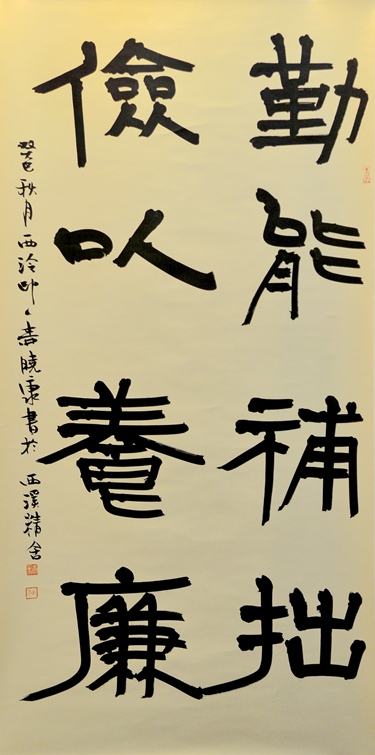 勤能補拙
儉以養廉
癸巳秋月西泠印曉康書於西溪精舍